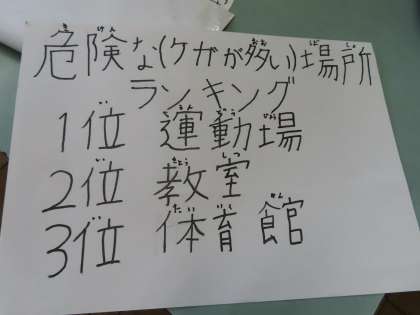 危険な(ケガが多い)場所
ランキング
1位 運動場
2位 教室
3位 体育館